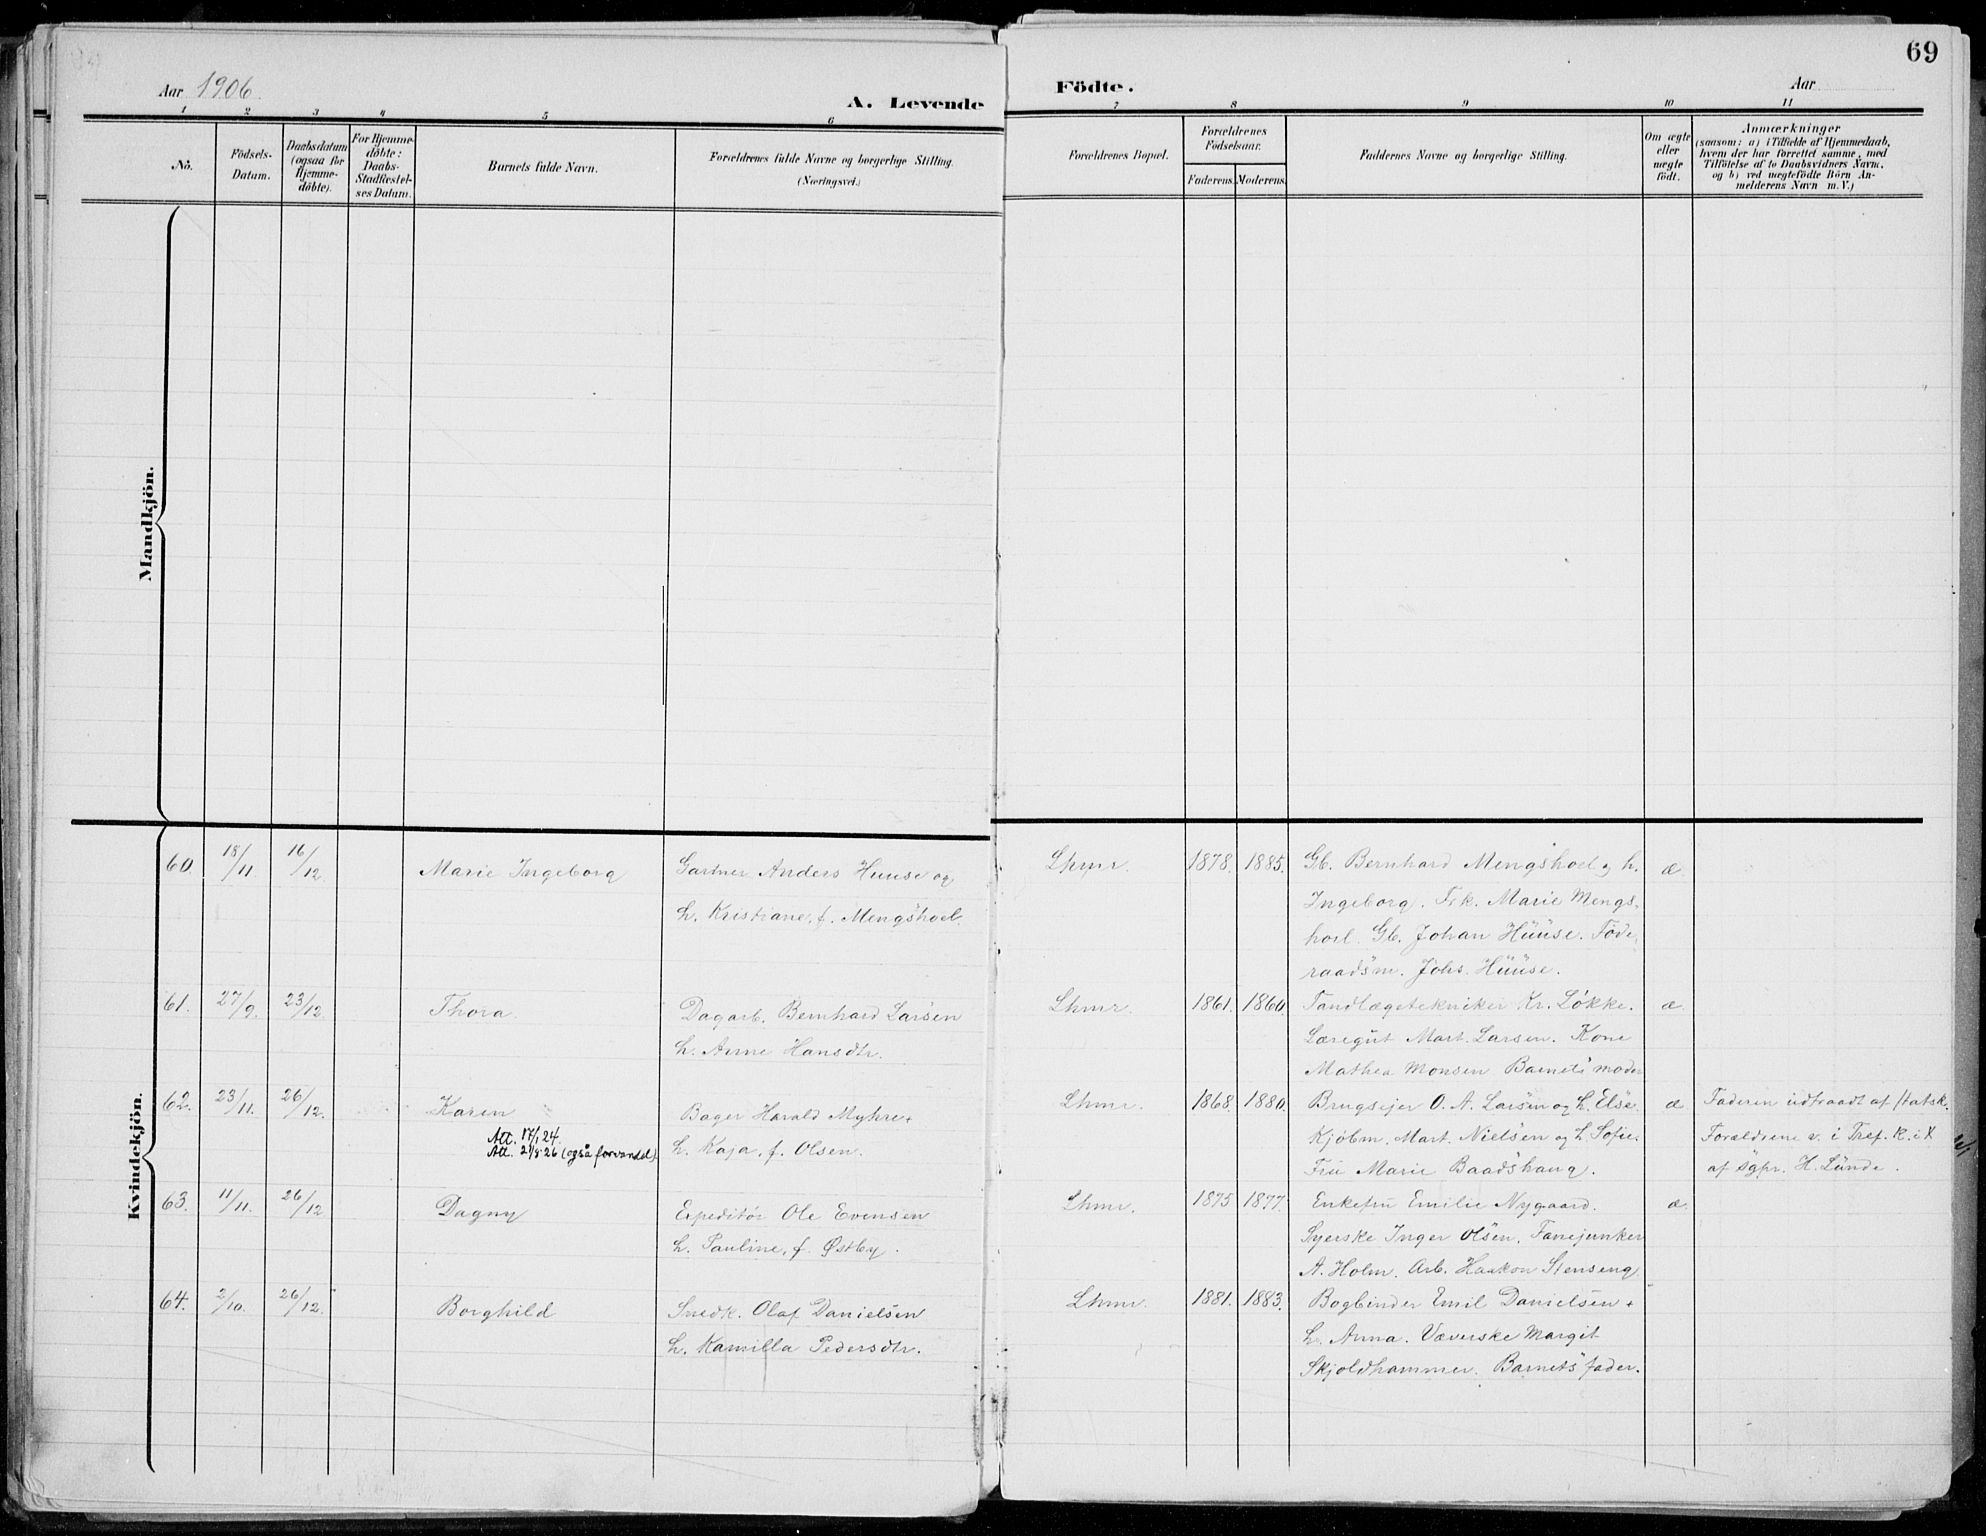 69
Aar 1906.
A. Levende
Födte.
Aar
1 2 3 4 5 6
7 8 9 10 11
No.
Födsels-Datum.
Daabsdatum (ogsaa for Hjemmedöbte).
For Hjemmedöbte: Daabs-Stadfæstelses Datum.
Barnets fulde Navn.
Forældrenes fulde Navne og borgerlige Stilling.
(Næringsvei.)
Forældrenes Bopæl.
Forældrenes Födselsaar.
Faderens. Moderens.
Faddernes Navne og borgerlige Stilling.
Om ægte eller uegte født.
Anmærkninger
(saasom: a) i Tilfælde af Hjemmedaab,
hvem der har forrettet samme, med
Tilföielse af to Daabsvidners Navn,
og b) ved uegtefödte Börn An-
melderens Navn m. V.)
Mandkjön.
Kvindekjön.
60. 18/11 16/12. Marie Ingeborg Gartner Anders Huuse og Lhmr. 1878. 1885. Gb. Bernhard Mengshoel og h. æ.
h. Kristiane, f. Mengshoel. Ingeborg. Frk. Marie Mengs-
hoel. Gb. Johan Huuse. Føde-
raadsm. Johs. Huuse.
61. 27/9. 23/12. Thora. Dagarb. Bernhard Larsen Lhmr. 1861. 1860. Tandlægetekniker Kr. Løkke. æ.
h. Anne Hansdtr. Læregut Mart. Larsen. Kone
Mathea Monsen Barnets moder
62. 23/11. 26/12. Karen Bager Harald Myhre + Lhmr. 1868. 1880. Brugsejer O. A. Larsen og h. Else. æ Faderen udtraadt af statsk.
Att. 17/1 24.
Att. 21/5 26 (også forvandel)
h. Kaja, f. Olsen. Kjøbm. Mart. Nielsen og h. Sofie. Forældrene v. i Tref. K. i X
Fru Marie Baadshaug. af sgpr. H. Lunde.
63. 11/11. 26/12 Dagny Expeditør Ole Evensen Lhmr. 1875 1877. Enkefru Emilie Nygaard. æ.
h. Pauline, f. Østby. Syerske Inger Olsen. Fanejunker
A. Holm. Arb. Haakon Stenseng
64. 2/10. 26/12. Borghild Snedk. Olaf Danielsen Lhmr. 1881. 1883. Bogbinder Emil Danielsen +
h. Kamilla Pedersdtr. h. Anna. Væverske Margit
Skjoldhammer. Barnets fader.